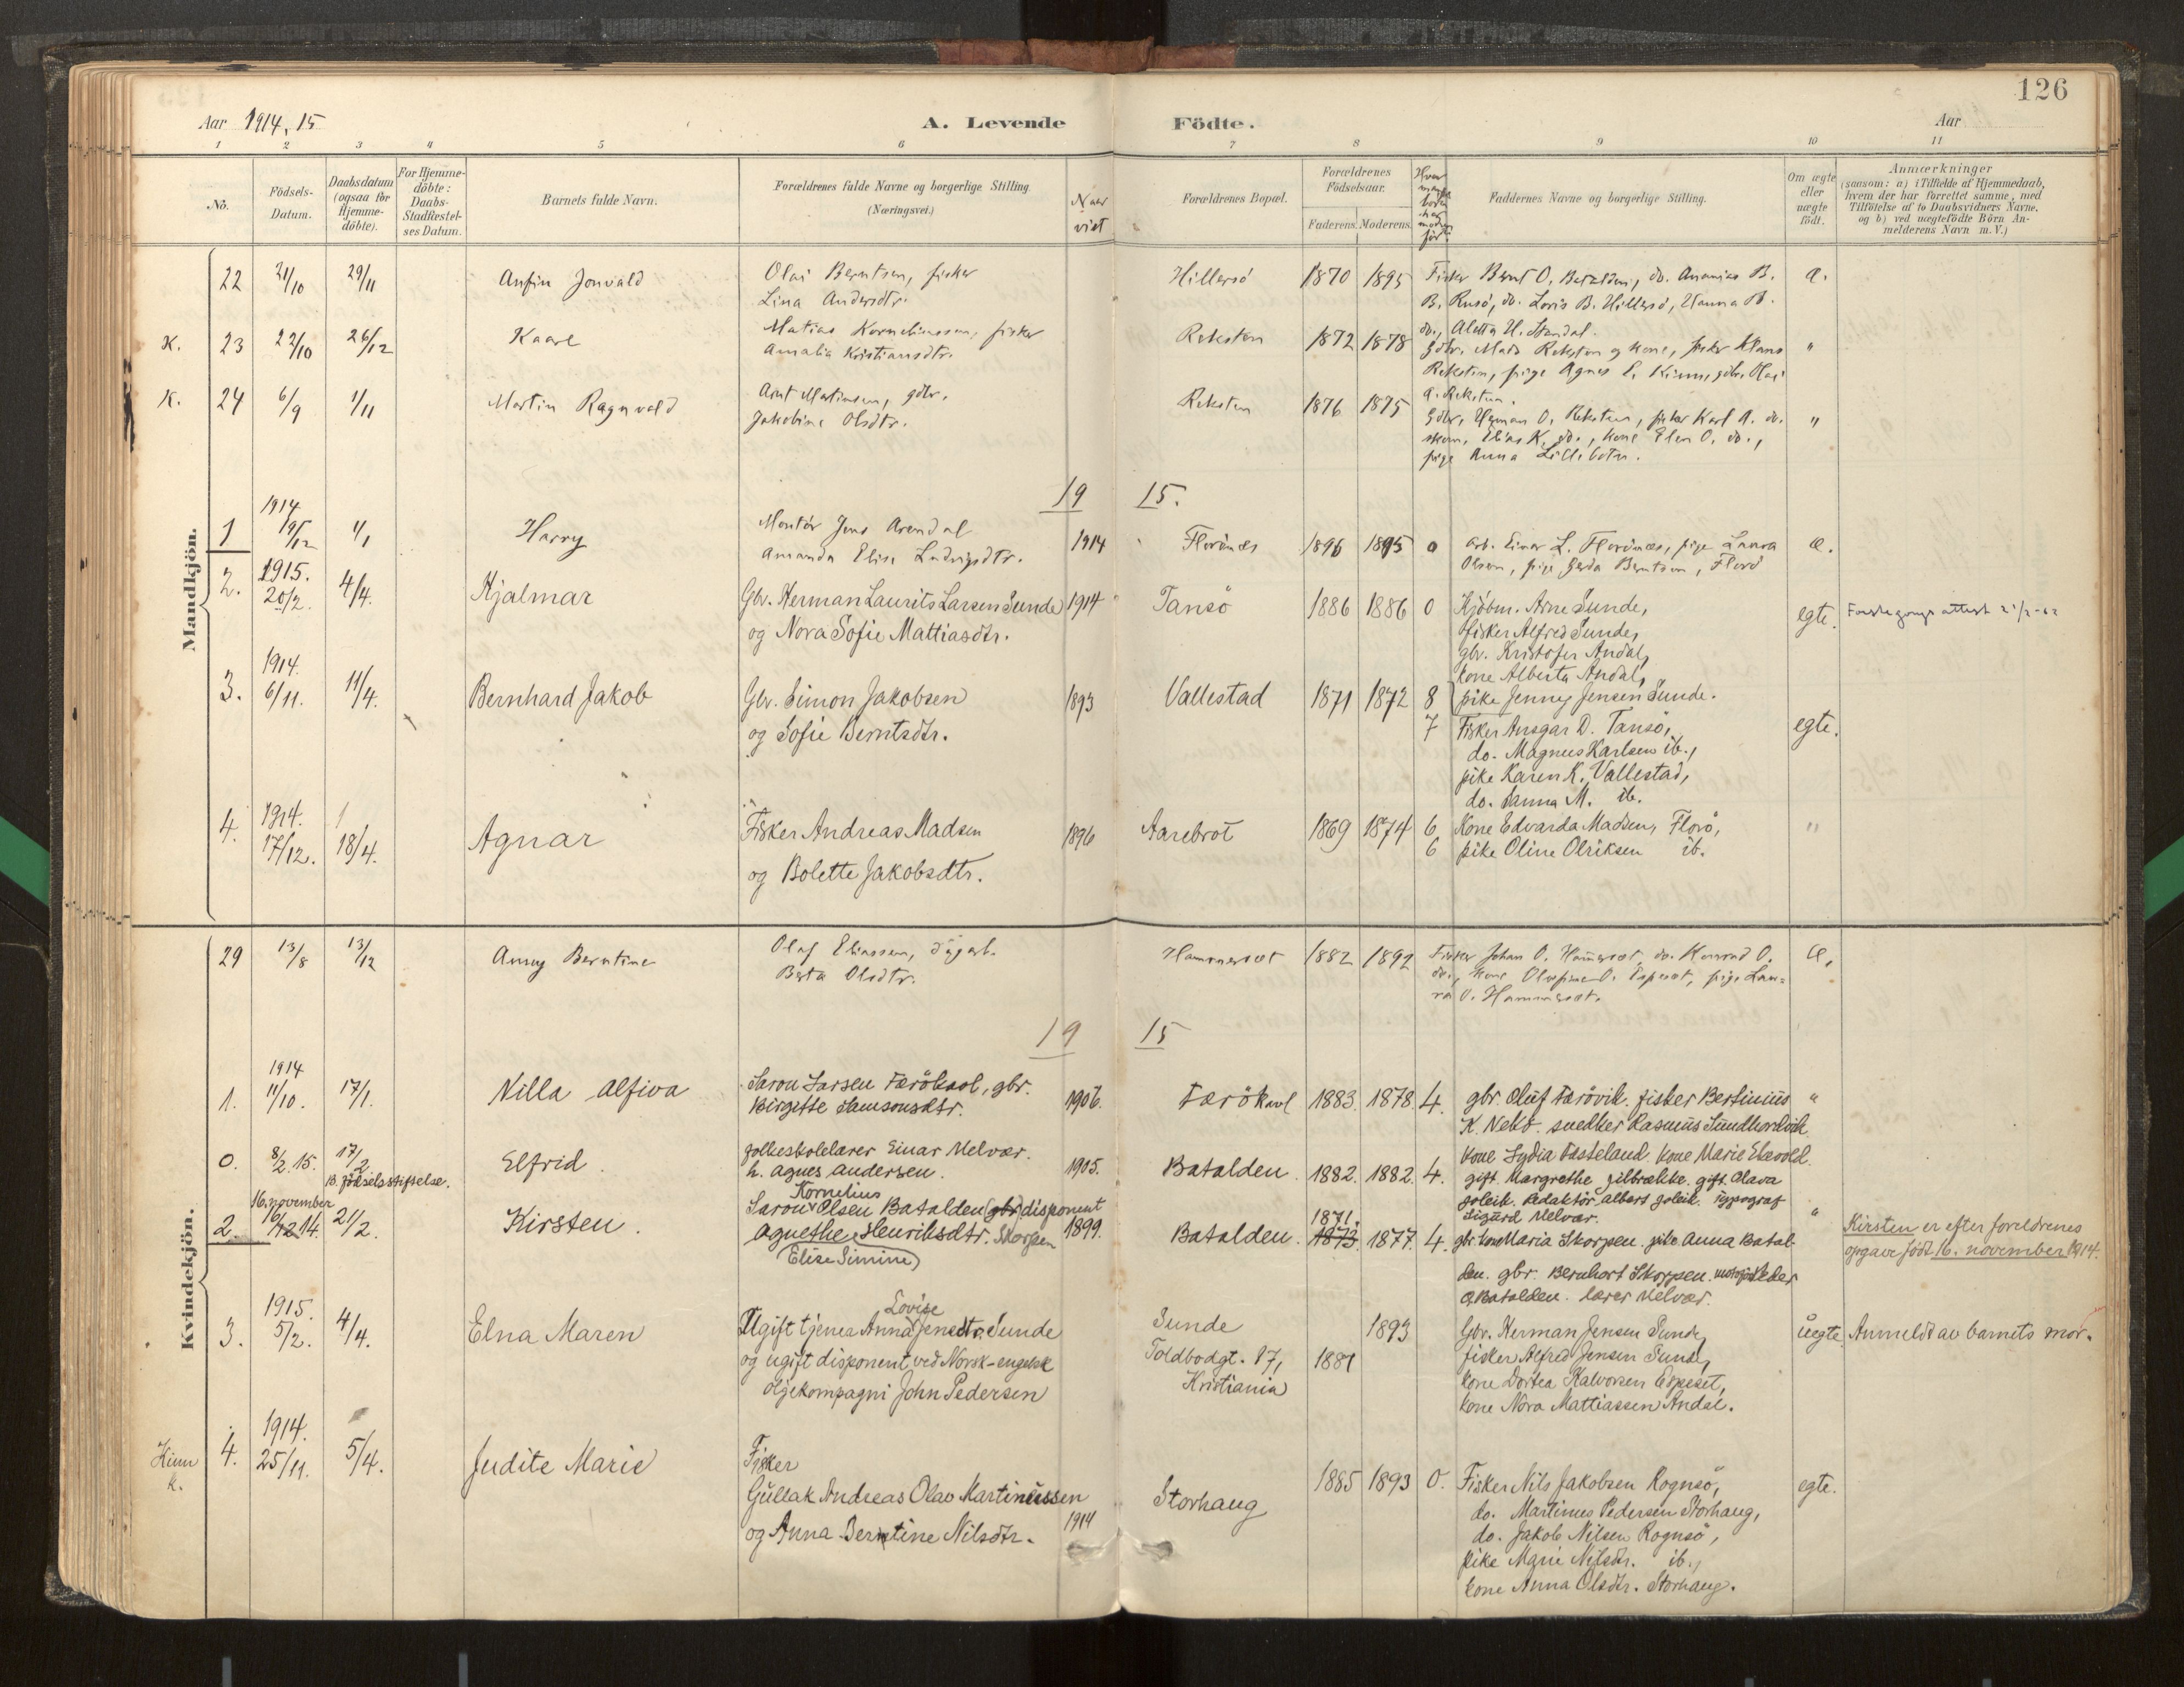 126
Aar 1914, 15
A. Levende Födte.
Aar
1 2 3 4 5 6 7 8 9 10 11
No.
Födsels-Datum.
Daabsdatum (ogsaa for Hjemme-döbte).
For Hjemme-döbte: Daabs-Stadfæstel-ses Datum.
Barnets fulde Navn.
Forældrenes fulde Navne og borgerlige Stilling.
(Næringsvei.)
Naar viet
Forældrenes Bopæl.
Forældrenes Födselsaar.
Faderens. Moderens.
Faddernes Navne og borgerlige Stilling.
Om ægte eller uægte födt.
Anmærkninger
(saasom: a) i Tilfælde af Hjemmedaab,
hvem der har forrettet samme, med
Tilföielse af to Daabsvidners Navne.
og b) ved uægtefödte Börn An-
melderens Navn m. V.)
Mandkjön.
22 21/10 29/11 Anfin Jonvald Olai Berntsen, fisker Hillersö 1870 1895 Fisker Bernt O. Batalden, do. Ananias B. æ.
Lina Andersdtr. B. Rusö, do. Loris B. Hillersö, Hanna B.
do., Aletta H. Standal.
K. 23 22/10 26/12 Kaare Matias Korneliussen, fisker Reksten 1872 1878 Gdbr. Mads Reksten og kone, fisker Klaus "
Amalia Kristiansdtr. Reksten, pige Agnes E. Kinn, gdbr. Olai
A. Reksten.
K. 24 6/9 1/11 Martin Ragnvald Arnt Martinsen, gdbr. Reksten 1876 1875 Gdbr. Herman O. Reksten, fisker Karl A. do. "
Jakobine Olsdtr. Elias K. do., kone Elen O. do.,
pige Anna Lillebotn.
19 15.
1 1914 19/12 1/1 Harry Montör Jens Arendal 1914 Florönes 1896 1895 0 arb. Einar L. Florönes, pige Laura æ.
Amanda Elise Ludvigsdtr. Olsen, pige Gerda Berntsen, Florö
2. 1915. 20/2. 4/4. Hjalmar Gbr. Herman Laurits Larsen Sunde 1914 Tansö 1886 1886 0 Kjöbm. Arne Sunde, egte. Förstegangs attest 21/2-62
og Nora Sofie Mattiasdtr. fisker Alfred Sunde,
gbr. Kristofer Andal,
kone Alberta Andal,
pike Jenny Jensen Sunde.
3. 1914. 6/11. 11/4. Bernhard Jakob Gbr. Simon Jakobsen 1893 Vallestad 1871 1872 8
og Sofie Berntsdtr. 7 Fisker Ansgar D. Tansö, egte.
do. Magnus Karlsen ib.,
pike Karen K. Vallestad,
do. Sanna M. ib.
4. 1914. 17/12. 18/4. Agnar Fisker Andreas Madsen 1896 Aarebrot 1869 1874 6 Kone Edvarda Madsen, Florö, "
og Bolette Jakobsdtr. 6 pike Oline Olriksen ib.
Kvindekjön.
29 13/8 13/12 Anny Berntine Olaf Eliassen, Hammerset 1882 1892 Fisker Johan O. Hammerset, do. Konrad O. æ.
Berta Olsdtr. do., kone Olufine O. Espeset, pige Lau-
ra O. Hammerset.
19 15
1. 1914 11/10. 17/1. Nilla Alfiva Saron Larsen Færökavl, gbr. 1906. Færökavl 1883. 1878. 4. gbr Oluf Færövik. fisker Bertinius "
Birgitte Samsonsdtr. K. Nekö. snedker Rasmus Sundhordvik
kone Lydia Fasteland kone Marie Elvevold.
0. 8/2. 15. 17/2 B. födselsstiftelse. Elfrid. folkeskolelærer Einar Melvær. 1905. Batalden. 1882. 1882. 4. gift Margrethe Gilbrække. gift. Olava
h. Agnes Andersen. Soleik. Redaktör Albert Soleik. typograf
Sigurd Melvær.
2. 16. november 16/12 14. 21/2. Kirsten. Saron Kornelius Olsen Batalden (gbr) disponent 1899. Batalden. 1871. 1873. 1877. 4. gbr. kone Maria Skorpen. pike Anna Batal- "
Agnethe Henriksdtr. Skorpen den. gbr. Bernhart Skorpen. Peder
(Elise Simine) O. Batalden. lærer Melvær.
Kirsten er efter foreldrenes
opgave födt 16. november 1914.
3. 1915. 5/2. 4/4. Elna Maren Ugift tjener Anna Lovise Jensdtr. Sunde Sunde 1893 Gbr. Herman Jensen Sunde, uegte. Anmeldt av barnets mor.
og ugift disponent ved Norsk-engelsk Toldbodgt. 17, 1881 fisker Alfred Jensen Sunde,
oljekompagni John Pedersen Kristiania kone Dortea Halvorsen Espeset,
kone Nora Mattiassen Andal.
Kinn k. 4. 1914. 25/11. 5/4. Judite Marie Fisker
Gullak Andreas Olav Martinussen 1914 Storhaug 1885 1893 0. Fisker Nils Jakobsen Rognsö, egte.
og Anna Berntine Nilsdtr. do. Martinus Pedersen Storhaug,
do. Jakob Nilsen Rognsö,
pike Marie Nilsdtr. ib.,
kone Anna Olsdtr. Storhaug.